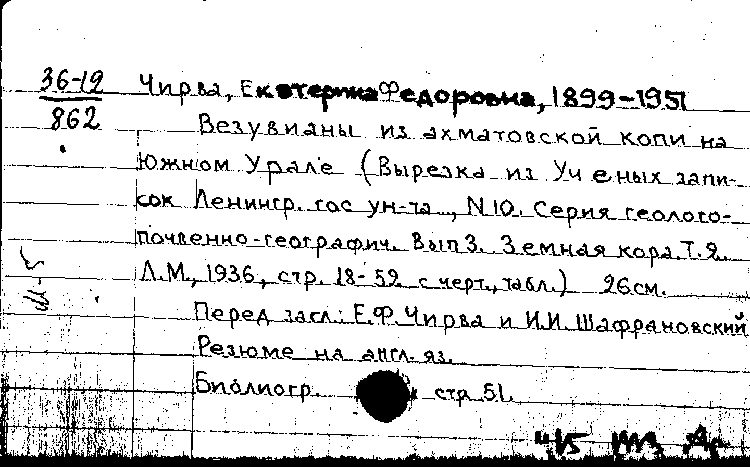 36-19
862
Чирва, Екатерина Федоровна, 1899-1951
Везувианы из ахматовской копи на
Южном Урале (Вырезка из Ученых запи-
сок Ленингр. гос ун-та.., N10. Серия геолого-
почвенно-географич. Вып 3. Земная кора. Т. 2.
Л.М., 1936, стр. 18-52 с черт., табл.) 26см.
Перед загл: Е.Ф. Чирва и И.И. Шафрановский
Резюме на англ. яз.
Библиогр. стр. 51.